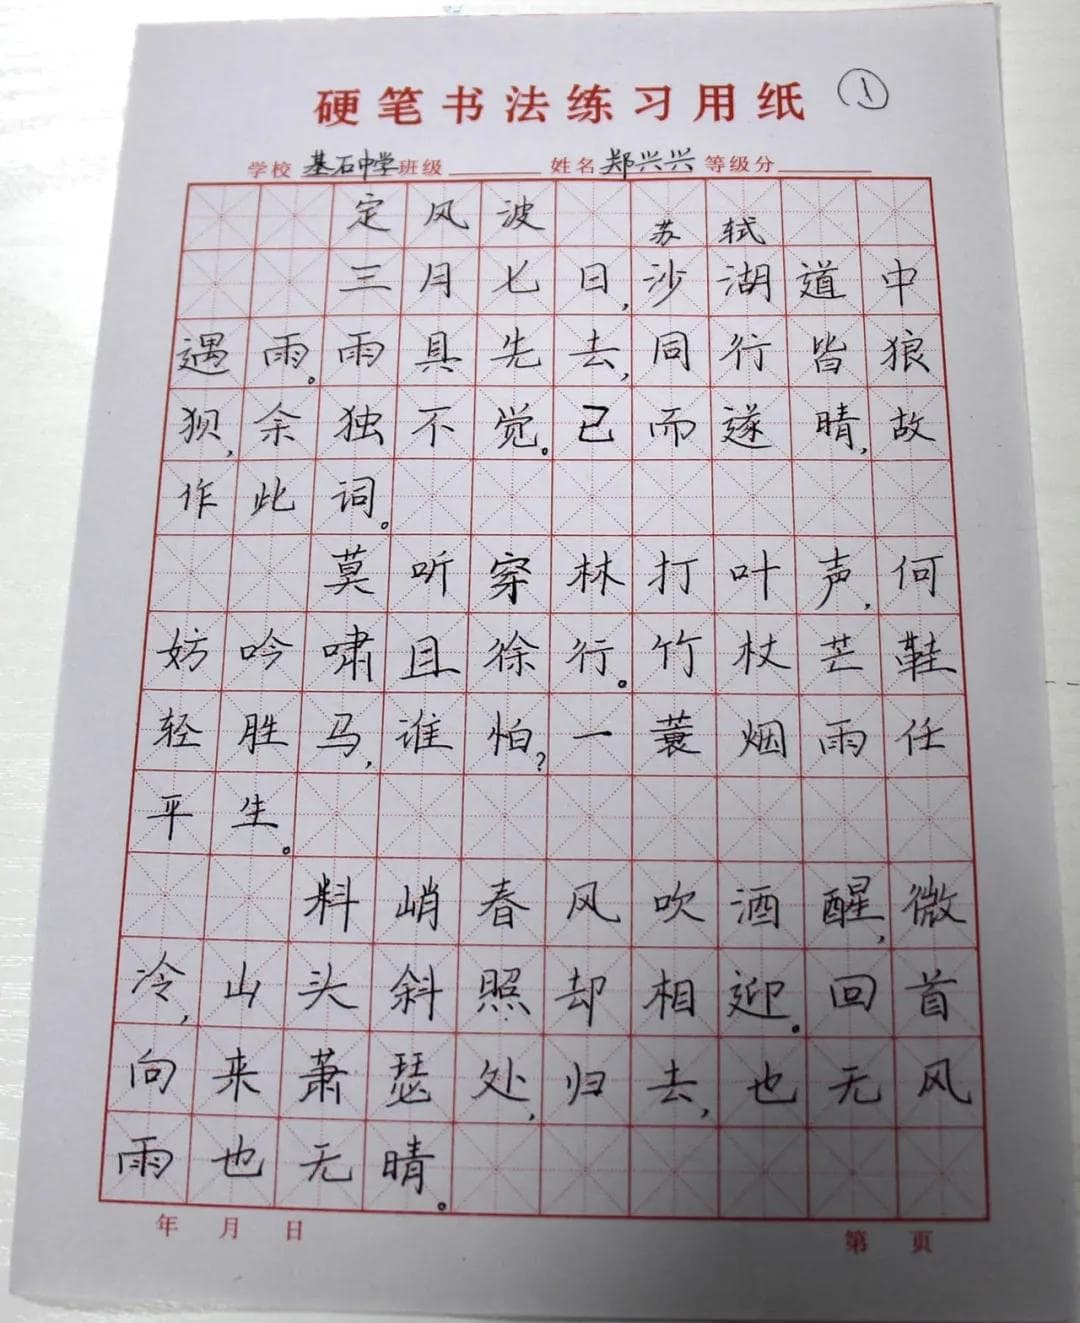 硬笔书法练习用纸 ①
学校 基石中学 班级 姓名 郑兴兴 等级分
定风波
苏轼
三月七日,沙湖道中
遇雨。雨具先去,同行皆狼
狈,余独不觉。已而遂晴,故
作此词。
莫听穿林打叶声,何
妨吟啸且徐行。竹杖芒鞋
轻胜马,谁怕?一蓑烟雨任
平生。
料峭春风吹酒醒,微
冷,山头斜照却相迎。回首
向来萧瑟处,归去,也无风
雨也无晴。
年 月 日 第 页